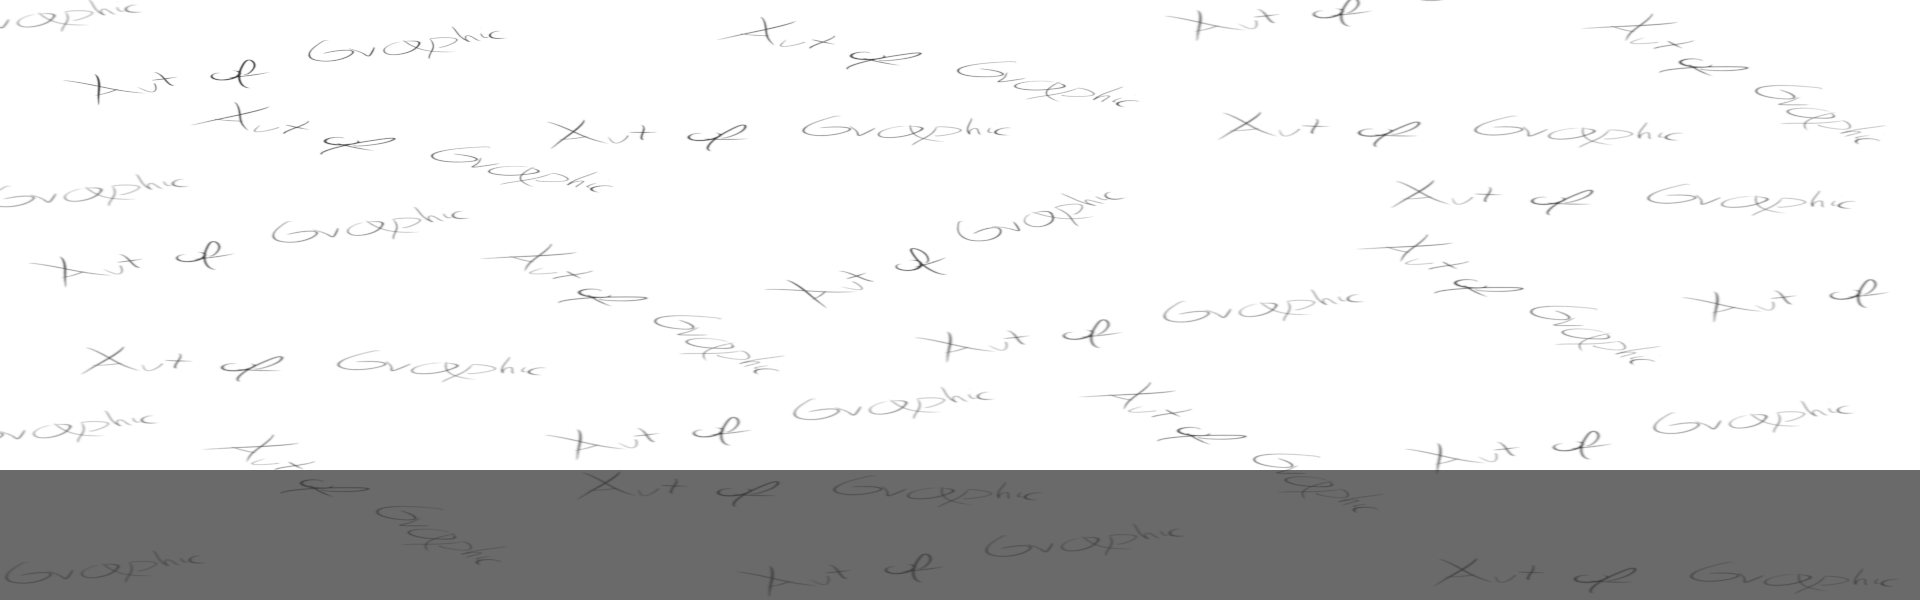 Graphic
Art & Graphic
Art & Graphic
Art &
Art & Graphic
Art & Graphic
Art & Graphic
Art & Graphic
Graphic
Art & Graphic
Art & Graphic
Art & Graphic
Art & Graphic
Art & Graphic
Art & Graphic
Art &
Art & Graphic
Art & Graphic
Graphic
Art & Graphic
Art & Graphic
Art & Graphic
Art & Graphic
Art & Graphic
Graphic
Art & Graphic
Art & Graphic